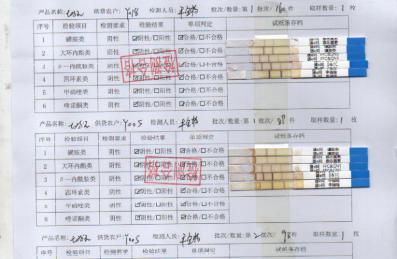 产品名称: 供货农户: 检测人员: 批次/数量:第1批次/ 取样数量:1 枚
序号 检验项目 检测要求 检验结果 单项判定 试纸条存档
1 磺胺类 阴性 ☑阴性/☐阳性 ☑合格/☐不合格
2 大环内酯类 阴性 ☑阴性/☐阳性 ☑合格/☐不合格
3 β-内酰胺类 阴性 ☑阴性/☐阳性 ☑合格/☐不合格
4 四环素类 阴性 ☑阴性/☐阳性 ☑合格/☐不合格
5 甲硝唑类 阴性 ☑阴性/☐阳性 ☑合格/☐不合格
6 喹诺酮类 阴性 ☑阴性/☐阳性 ☑合格/☐不合格
产品名称: 供货农户:Y005 检测人员: 批次/数量:第1批次/ 取样数量:1 枚
序号 检验项目 检测要求 检验结果 单项判定 试纸条存档
1 磺胺类 阴性 ☑阴性/☐阳性 ☑合格/☐不合格
2 大环内酯类 阴性 ☑阴性/☐阳性 ☑合格/☐不合格
3 β-内酰胺类 阴性 ☑阴性/☐阳性 ☑合格/☐不合格
4 四环素类 阴性 ☑阴性/☐阳性 ☑合格/☐不合格
5 甲硝唑类 阴性 ☑阴性/☐阳性 ☑合格/☐不合格
6 喹诺酮类 阴性 ☑阴性/☐阳性 ☑合格/☐不合格
产品名称: 供货农户:Y005 检测人员: 批次/数量:第2批次/ 取样数量:1 枚
序号 检验项目 检测要求 检验结果 单项判定 试纸条存档